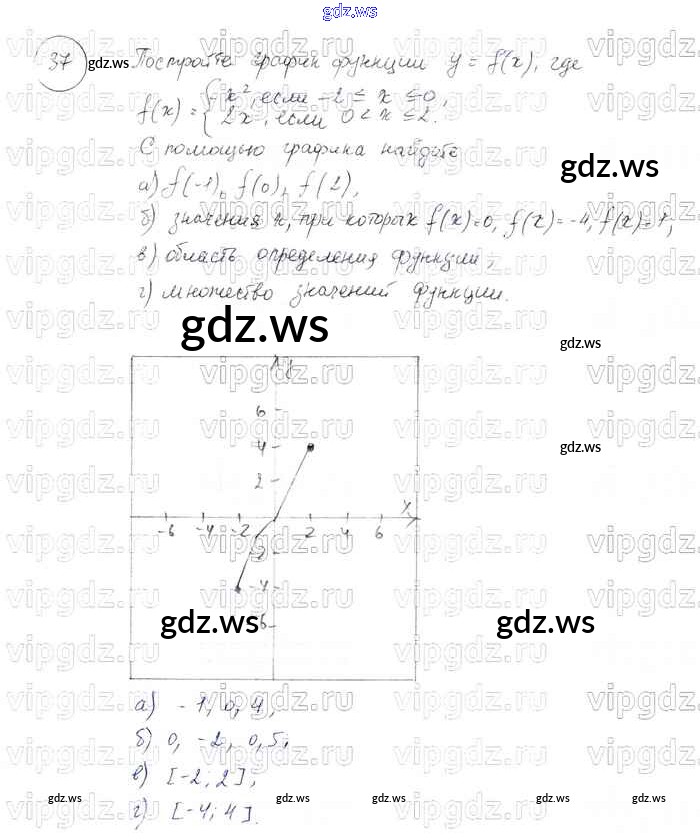 gdz.ws
37 gdz.ws Постройте график функции y = f(x), где
f(x) = { -x², если -2 ≤ x ≤ 0,
2x, если 0 < x ≤ 2.
С помощью графика найдите
gdz.ws
а) f(-1), f(0), f(2),
б) значения x, при которых f(x)=0, f(x)=-4, f(x)=1,
в) область определения функции,
г) множество значений функции.
gdz.ws
gdz.ws
y
6
4
gdz.ws
2
x
-6 -4 -2 2 4 6
-2
-4
gdz.ws gdz.ws
-6
а) -1, 0, 4,
б) 0, -2, 0,5,
в) [-2, 2],
г) [-4; 4].
gdz.ws gdz.ws gdz.ws gdz.ws gdz.ws
vipgdz.ru